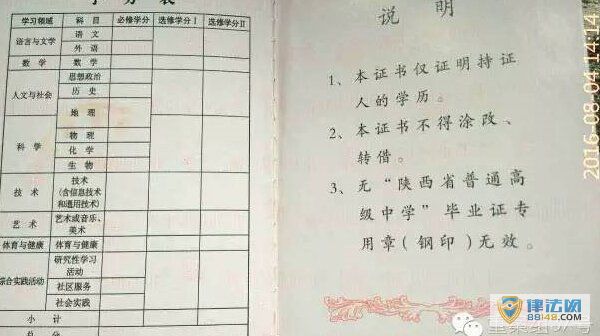 学习领域 科目 必修学分 选修学分Ⅰ 选修学分Ⅱ
语言与文学 语文
外语
数学 数学
人文与社会 思想政治
历史
地理
科学 物理
化学
生物
技术 技术
(含信息技术
和通用技术)
艺术 艺术或音乐、
美术
体育与健康 体育与健康
综合实践活动 研究性学习
活动
社区服务
社会实践
小计
说明
1、本证书仅证明持证
人的学历。
2、本证书不得涂改、
转借。
3、无“陕西省普通高
级中学”毕业证专
用章(钢印)无效。
2016-08-04 14:14
律法网
88148.com